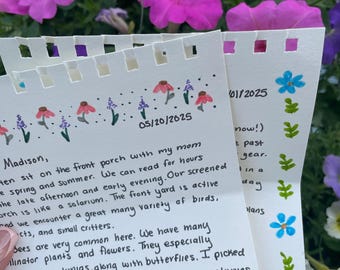 05/20/2025
Madison,
ten sit on the front porch with my mom
e spring and summer. We can read for hours
the late afternoon and early evening. Our screened
orch is like a solarium. The front yard is active
nd we encounter a great many variety of birds,
cts, and small critters.
Bees are very common here. We have many
llinator plants and flowers. They especially
along with butterflies. I picked
/01/2025
now!)
past
year.
in a
day
plans